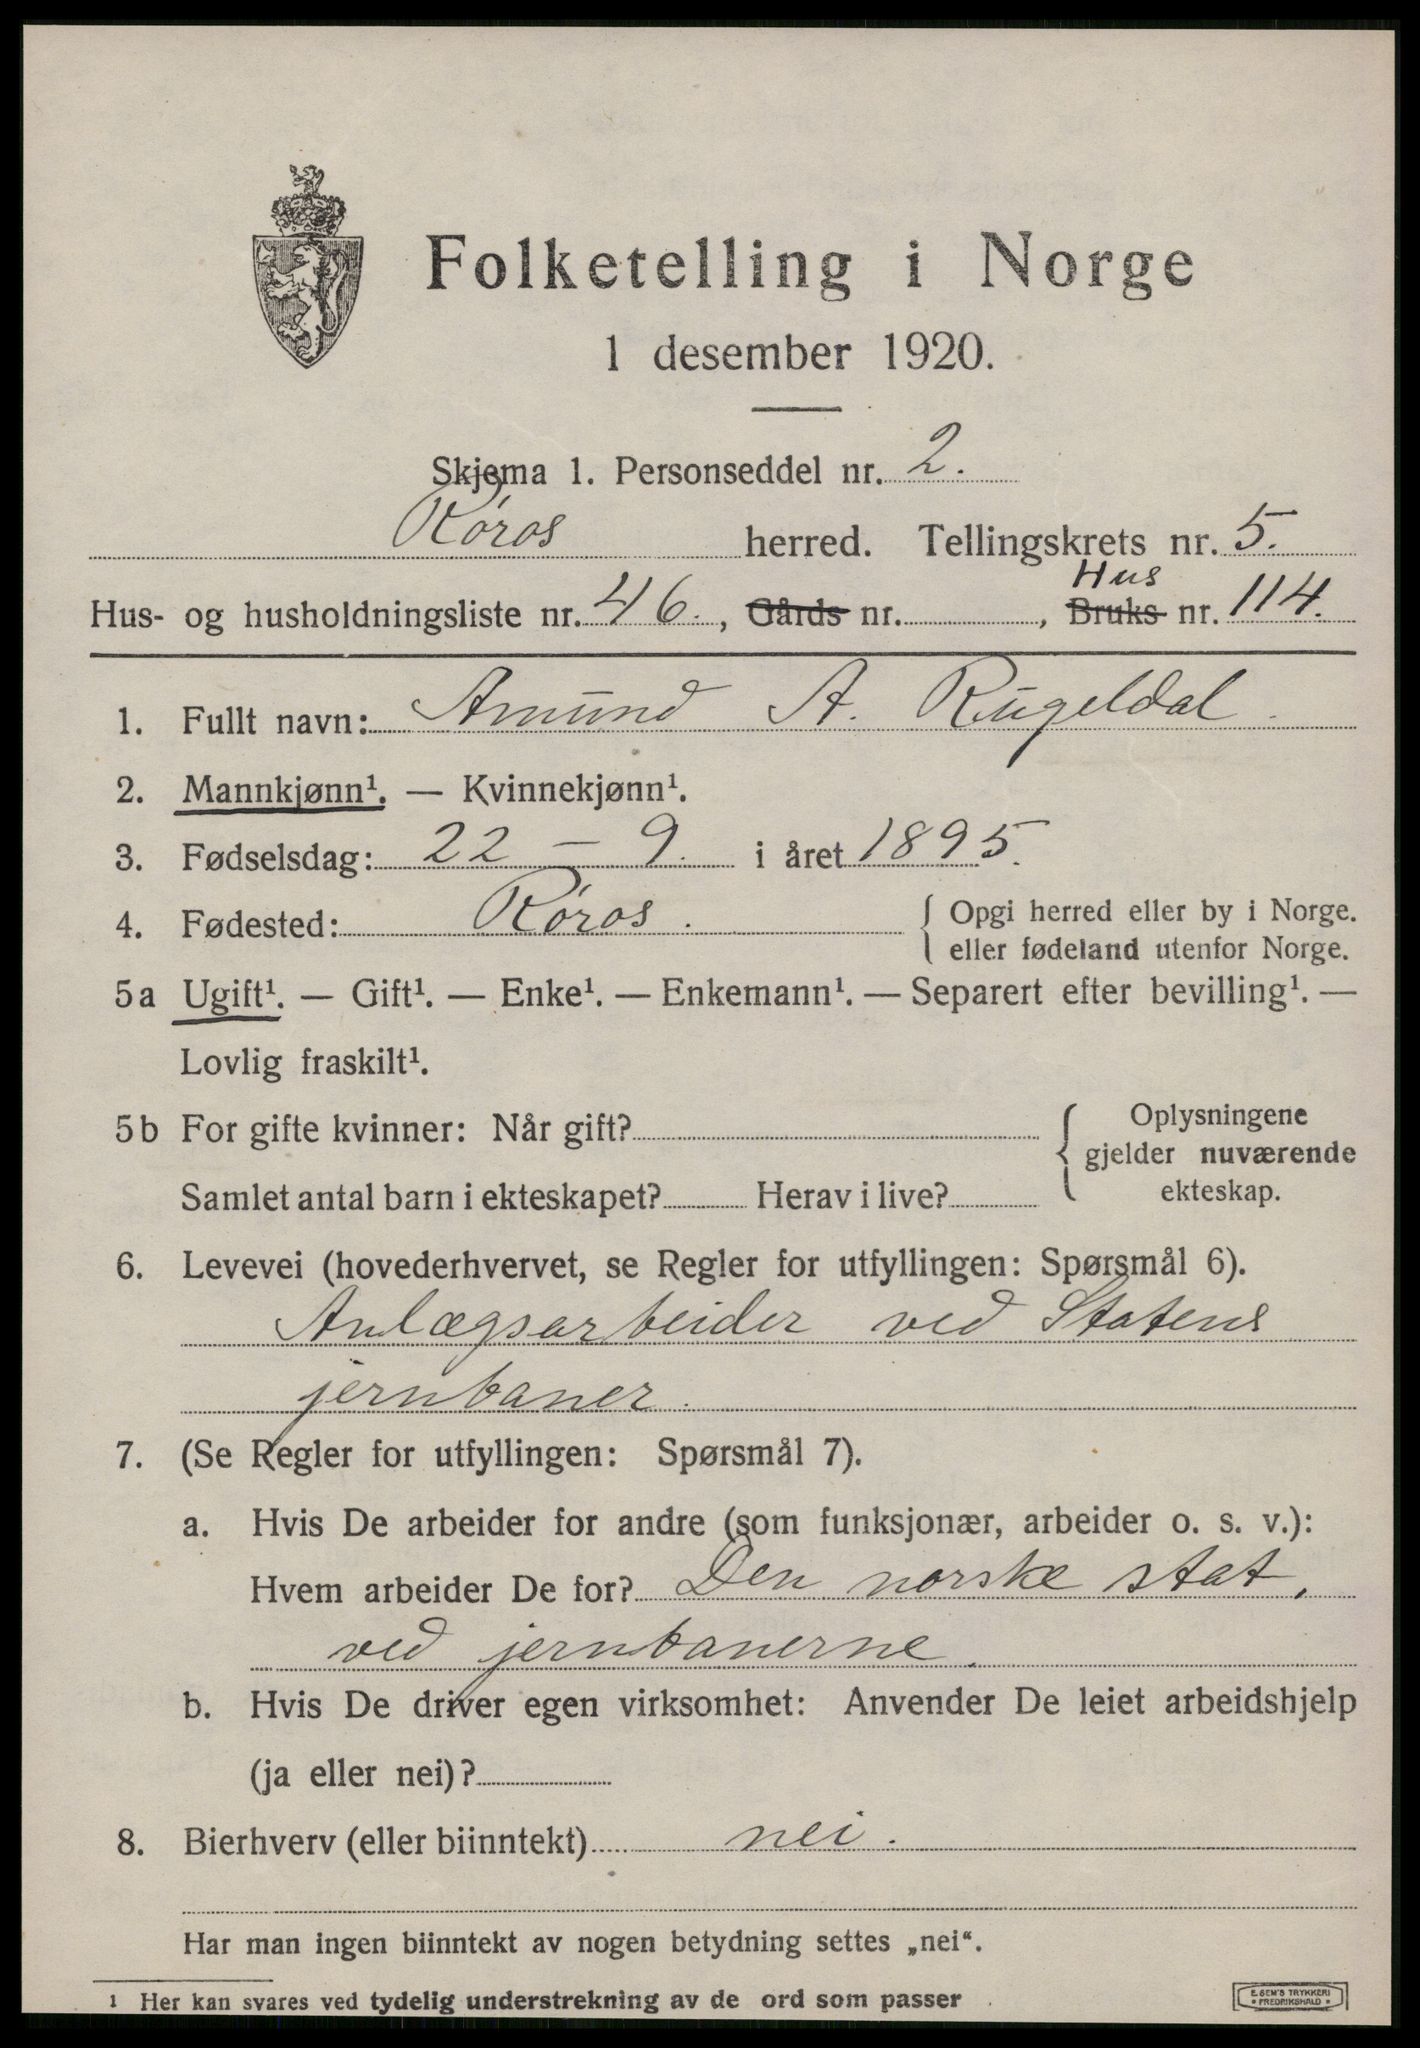 Folketelling i Norge
1 desember 1920.
Skjema 1. Personseddel nr. 2.
Røros herred. Tellingskrets nr. 5.
Hus- og husholdningsliste nr. 46., Gårds nr. , Bruks Hus nr. 114.
1. Fullt navn: Amund A. Rugeldal.
2. Mannkjønn¹. — Kvinnekjønn¹.
3. Fødselsdag: 22 - 9. i året 1895.
4. Fødested: Røros. { Opgi herred eller by i Norge.
eller fødeland utenfor Norge.
5a Ugift¹. — Gift¹. — Enke¹. — Enkemann¹. — Separert efter bevilling¹. —
Lovlig fraskilt¹.
5b For gifte kvinner: Når gift? { Oplysningene
gjelder nuværende
Samlet antal barn i ekteskapet? Herav i live? ekteskap.
6. Levevei (hovederhvervet, se Regler for utfyllingen: Spørsmål 6).
Anlægsarbeider ved Statens
jernbaner.
7. (Se Regler for utfyllingen: Spørsmål 7).
a. Hvis De arbeider for andre (som funksjonær, arbeider o. s. v.):
Hvem arbeider De for? Den norske stat,
ved jernbanerne.
b. Hvis De driver egen virksomhet: Anvender De leiet arbeidshjelp
(ja eller nei)?
8. Bierhverv (eller biinntekt) nei.
Har man ingen biinntekt av nogen betydning settes „nei“.
1 Her kan svares ved tydelig understrekning av de ord som passer
E. SEM'S TRYKKERI
FREDRIKSHALD